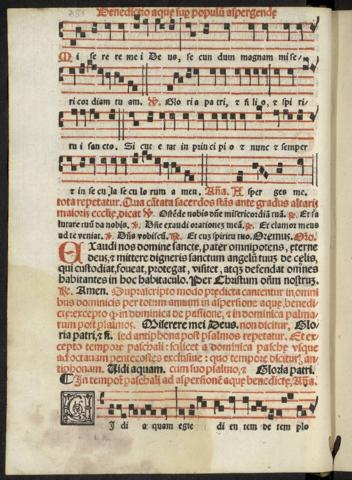 Benedictio aque sup populū aspergende
Mi se re re me i De us, se cun dum magnam mise/
ri cor diam tu am. ℣. Glo ria pa tri, ⁊ fi li o, ⁊ spi ri/
tu i san cto. Si cut e rat in prin ci pi o ⁊ nunc ⁊ semper
⁊ in se cu la se cu lo rum a men. Añа. A sper ges me.
tota repetatur. Qua cātata sacerdos stās ante gradus altaris
maioris ecclīe, dicat ℣. Ostēde nobis dñe misericordiā tuā. ℟. Et sa
lutare tuū da nobis. ℣. Dñe exaudi orationē meā. ℟. Et clamor meus
ad te veniat. ℣. Dñs vobiscū. ℟. Et cum spiritu tuo. Oremus. Orō.
Exaudi nos domine sancte, pater omnipotens, eterne
deus, ⁊ mittere digneris sanctum angelū tuū de celis,
qui custodiat, foueat, protegat, visitet, atq; defendat omnes
habitantes in hoc habitaculo. Per Christum dñm nostrum.
℟. Amen. Supradicto modo predicta cantentur in omni
bus dominicis per totum annum in aspersione aque benedi
cte: excepto q in dominica de passione, ⁊ in dominica palma
rum post psalmos. Miserere mei Deus. non dicitur, Glo
ria patri, ⁊ c̄. sed antiphona post psalmos repetatur. Et ex
cepto tempore paschali: scilicet a dominica pasche vsque
ad octauam pentecostes exclusiue: quo tempore dicitur, an
tiphonam. Uidi aquam. cum suo psalmo, ⁊ Gloria patri.
In tempore paschali ad aspersionē aque benedicte, Añа.
Ui di a quam egre di en tem de tem plo